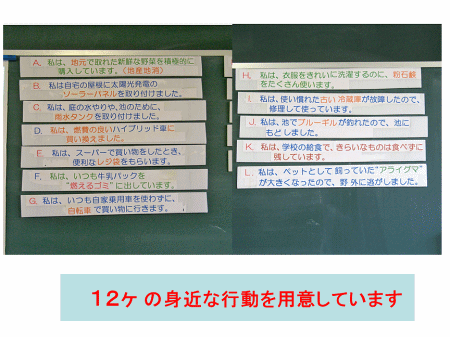 A. 私は、地元で取れた新鮮な野菜を積極的に
購入しています。（地産地消）
B. 私は自宅の屋根に太陽光発電の
ソーラーパネルを取り付けました。
C. 私は、庭の水やりや、池のために、
雨水タンクを取り付けました。
D. 私は、燃費の良いハイブリッド車に
買い換えました。
E. 私は、スーパーで買い物をしたとき、
便利なレジ袋をもらいます。
F. 私は、いつも牛乳パックを
“燃えるゴミ”に出しています。
G. 私は、いつも自家用車を使わずに、
自転車で買い物に行きます。
H. 私は、衣服をきれいに洗濯するのに、粉石鹸
をたくさん使います。
I. 私は、使い慣れた古い冷蔵庫が故障したので、
修理して使っています。
J. 私は、池でブルーギルが釣れたので、池に
もどしました。
K. 私は、学校の給食で、きらいなものは食べずに
残しています。
L. 私は、ペットとして飼っていた“アライグマ”
が大きくなったので、野外に逃がしました。
１２ヶの身近な行動を用意しています